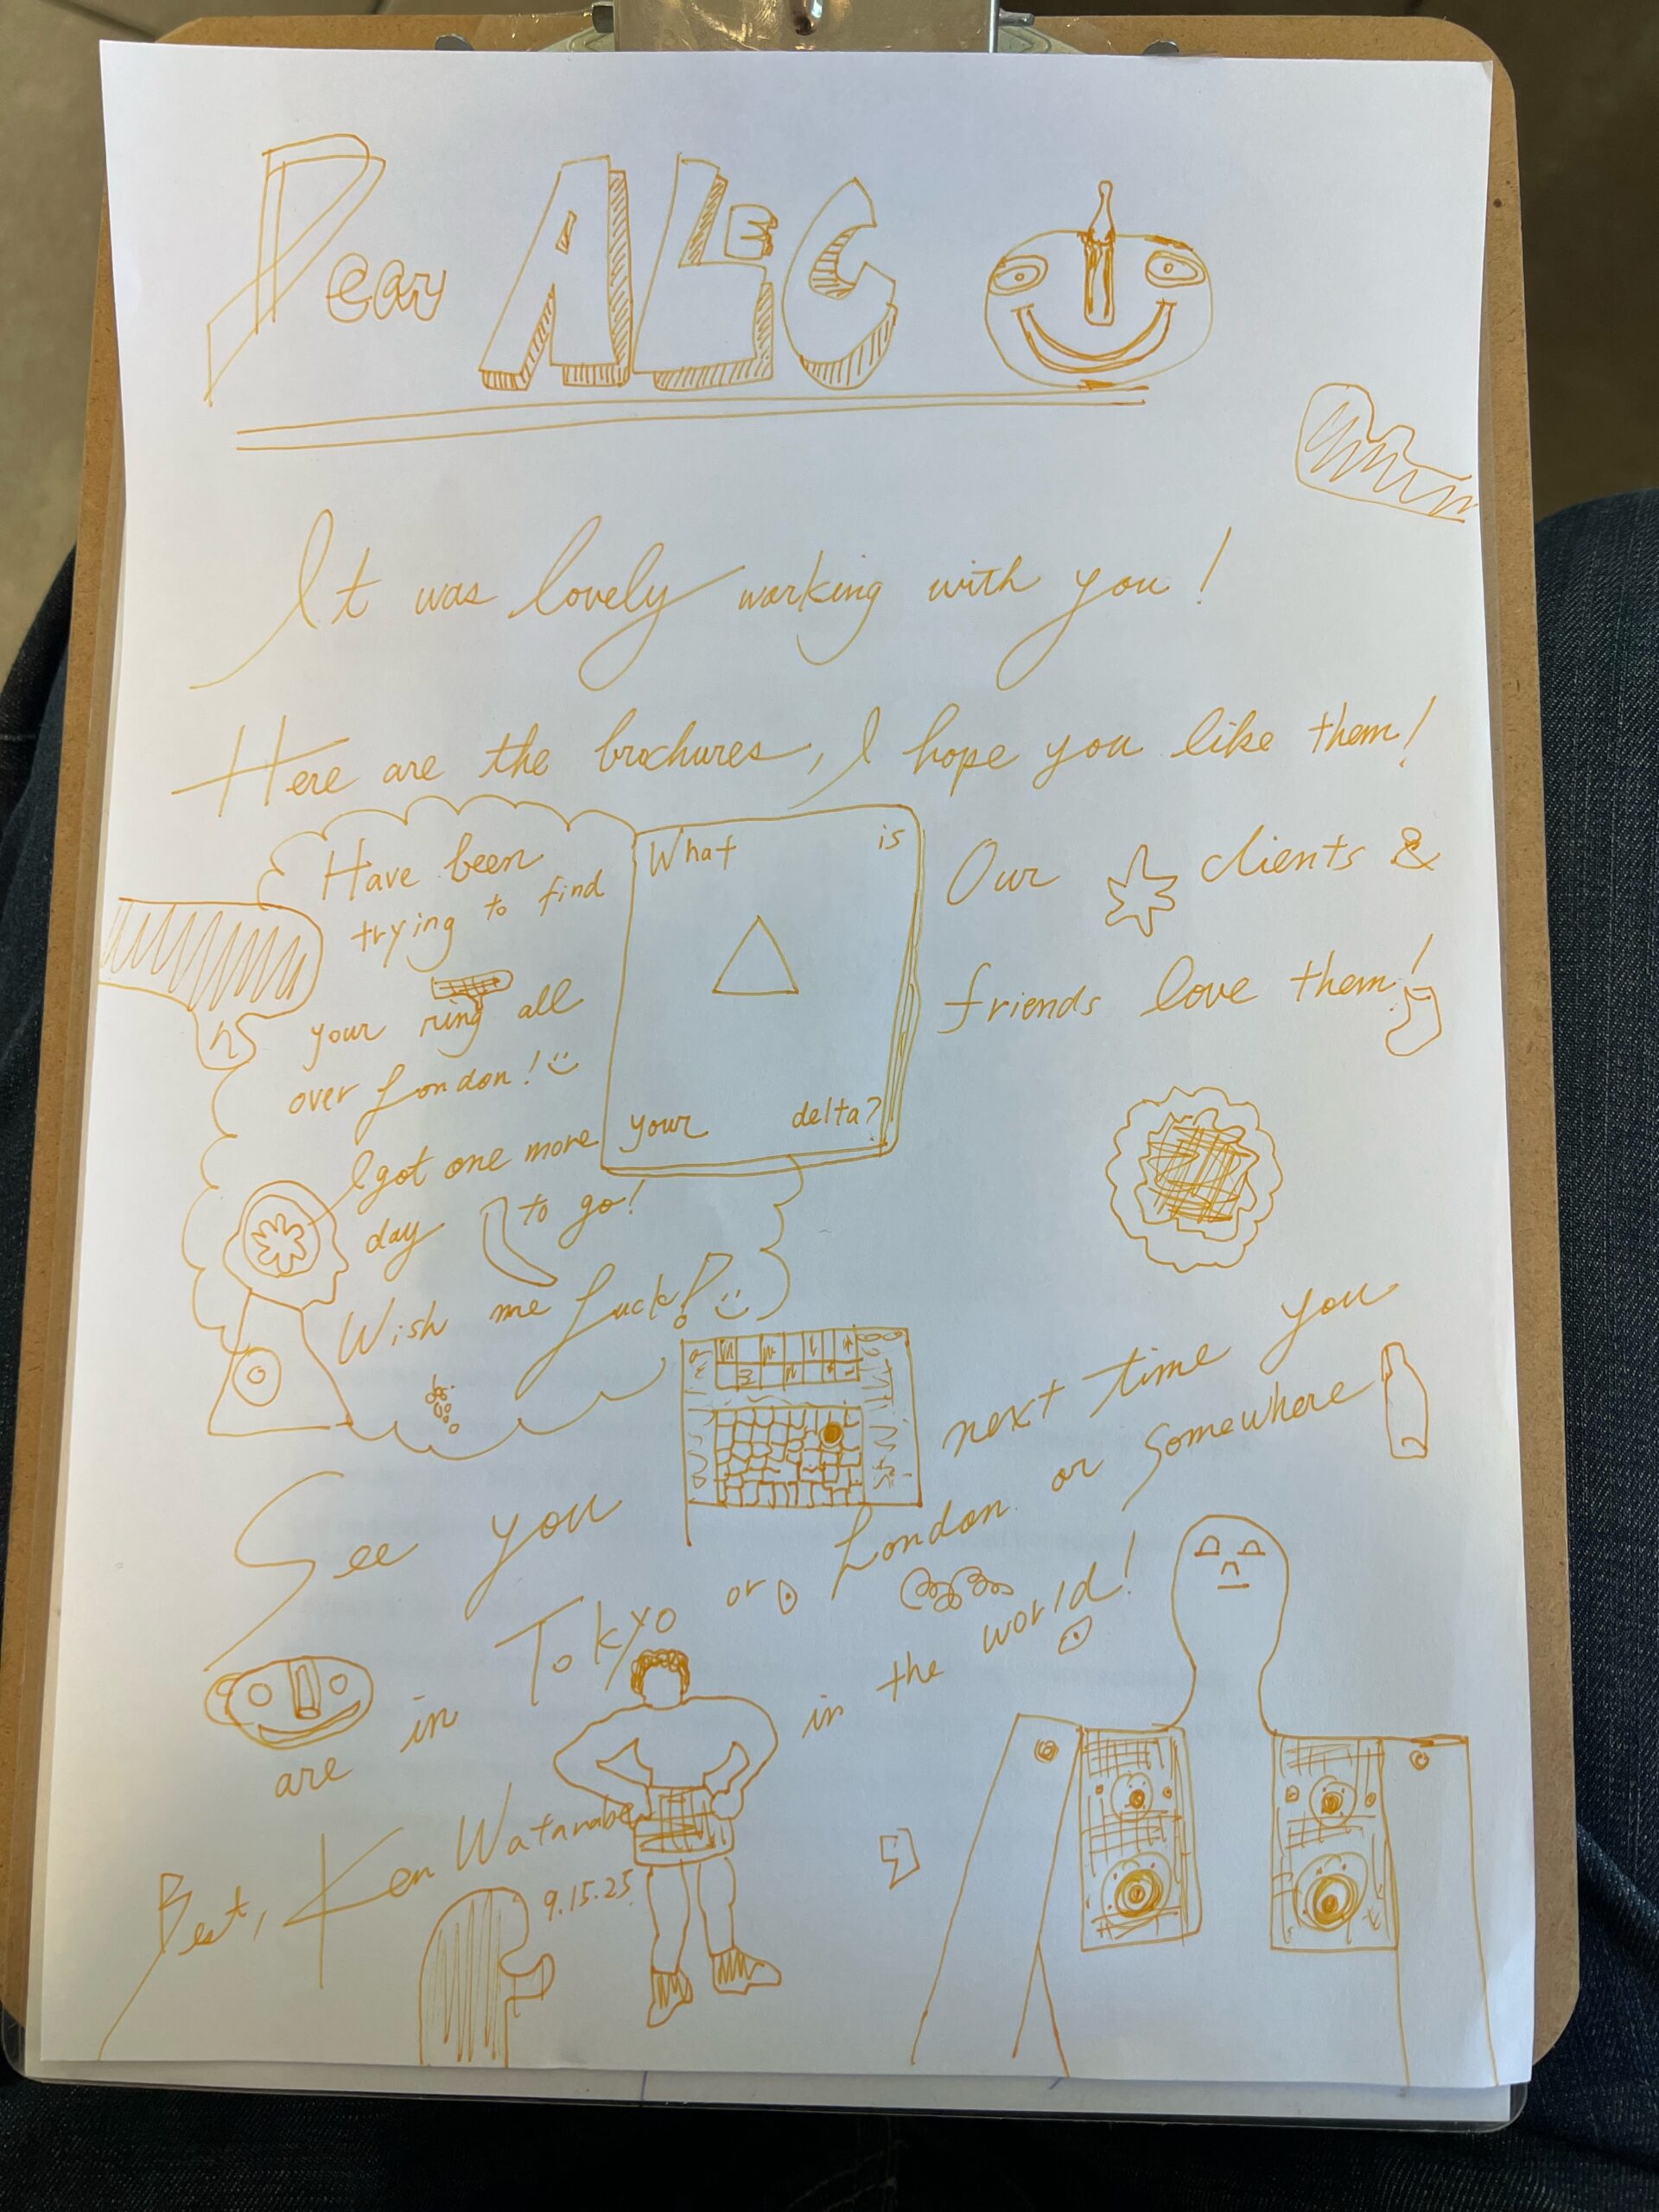 Dear ALEC
It was lovely working with you!
Here are the brochures, I hope you like them!
Have been
trying to find
your ring all
over London! :)
I got one more
day to go!
Wish me Luck! :)
What is
your delta?
Our clients &
friends love them!
See you next time you
are in Tokyo or London or Somewhere
in the world!
Best, Ken Watanabe
9.15.25